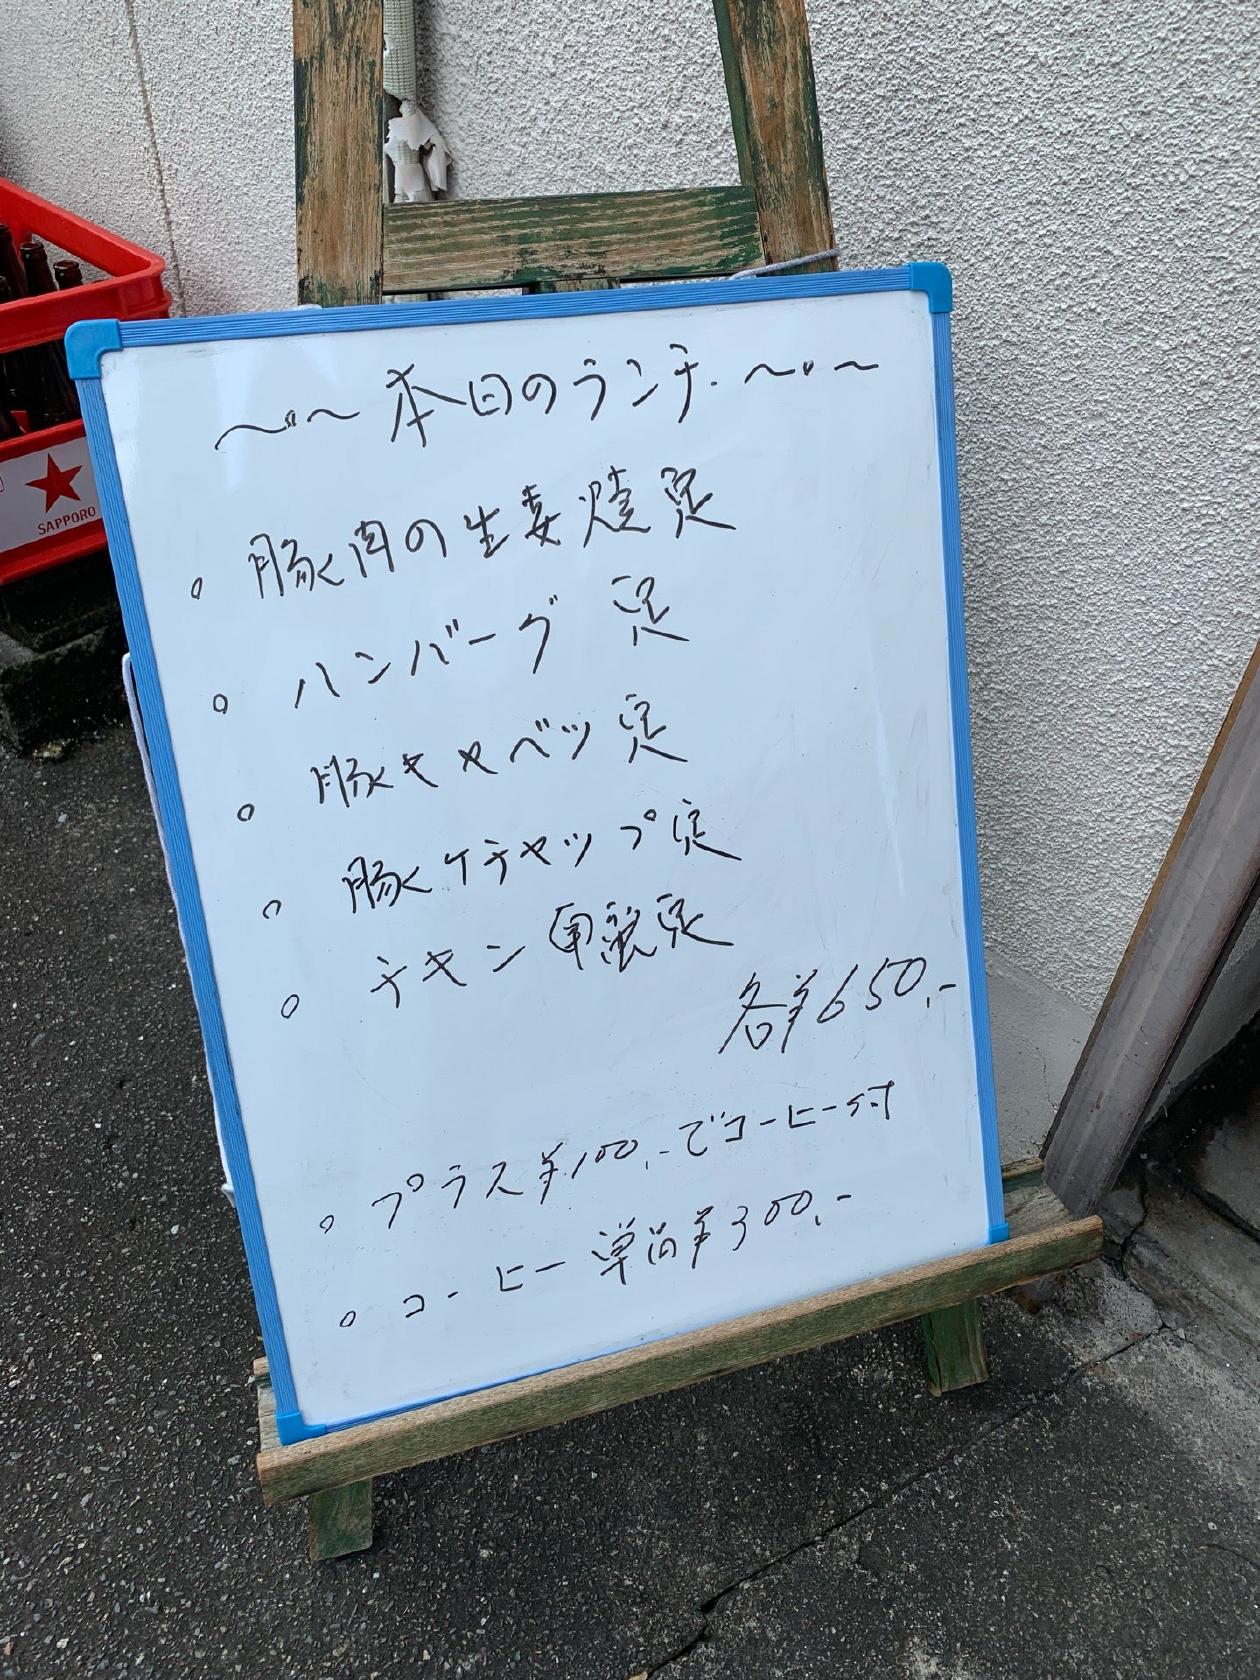 〜〃〜本日のランチ.〜〃〜
。豚肉の生姜焼定
。ハンバーグ 定
。豚キャベツ定
。豚ケチャップ定
。チキン 定
各¥650.-
。プラス¥100.-でコーヒー付
。コーヒー単品¥300.-
SAPPORO